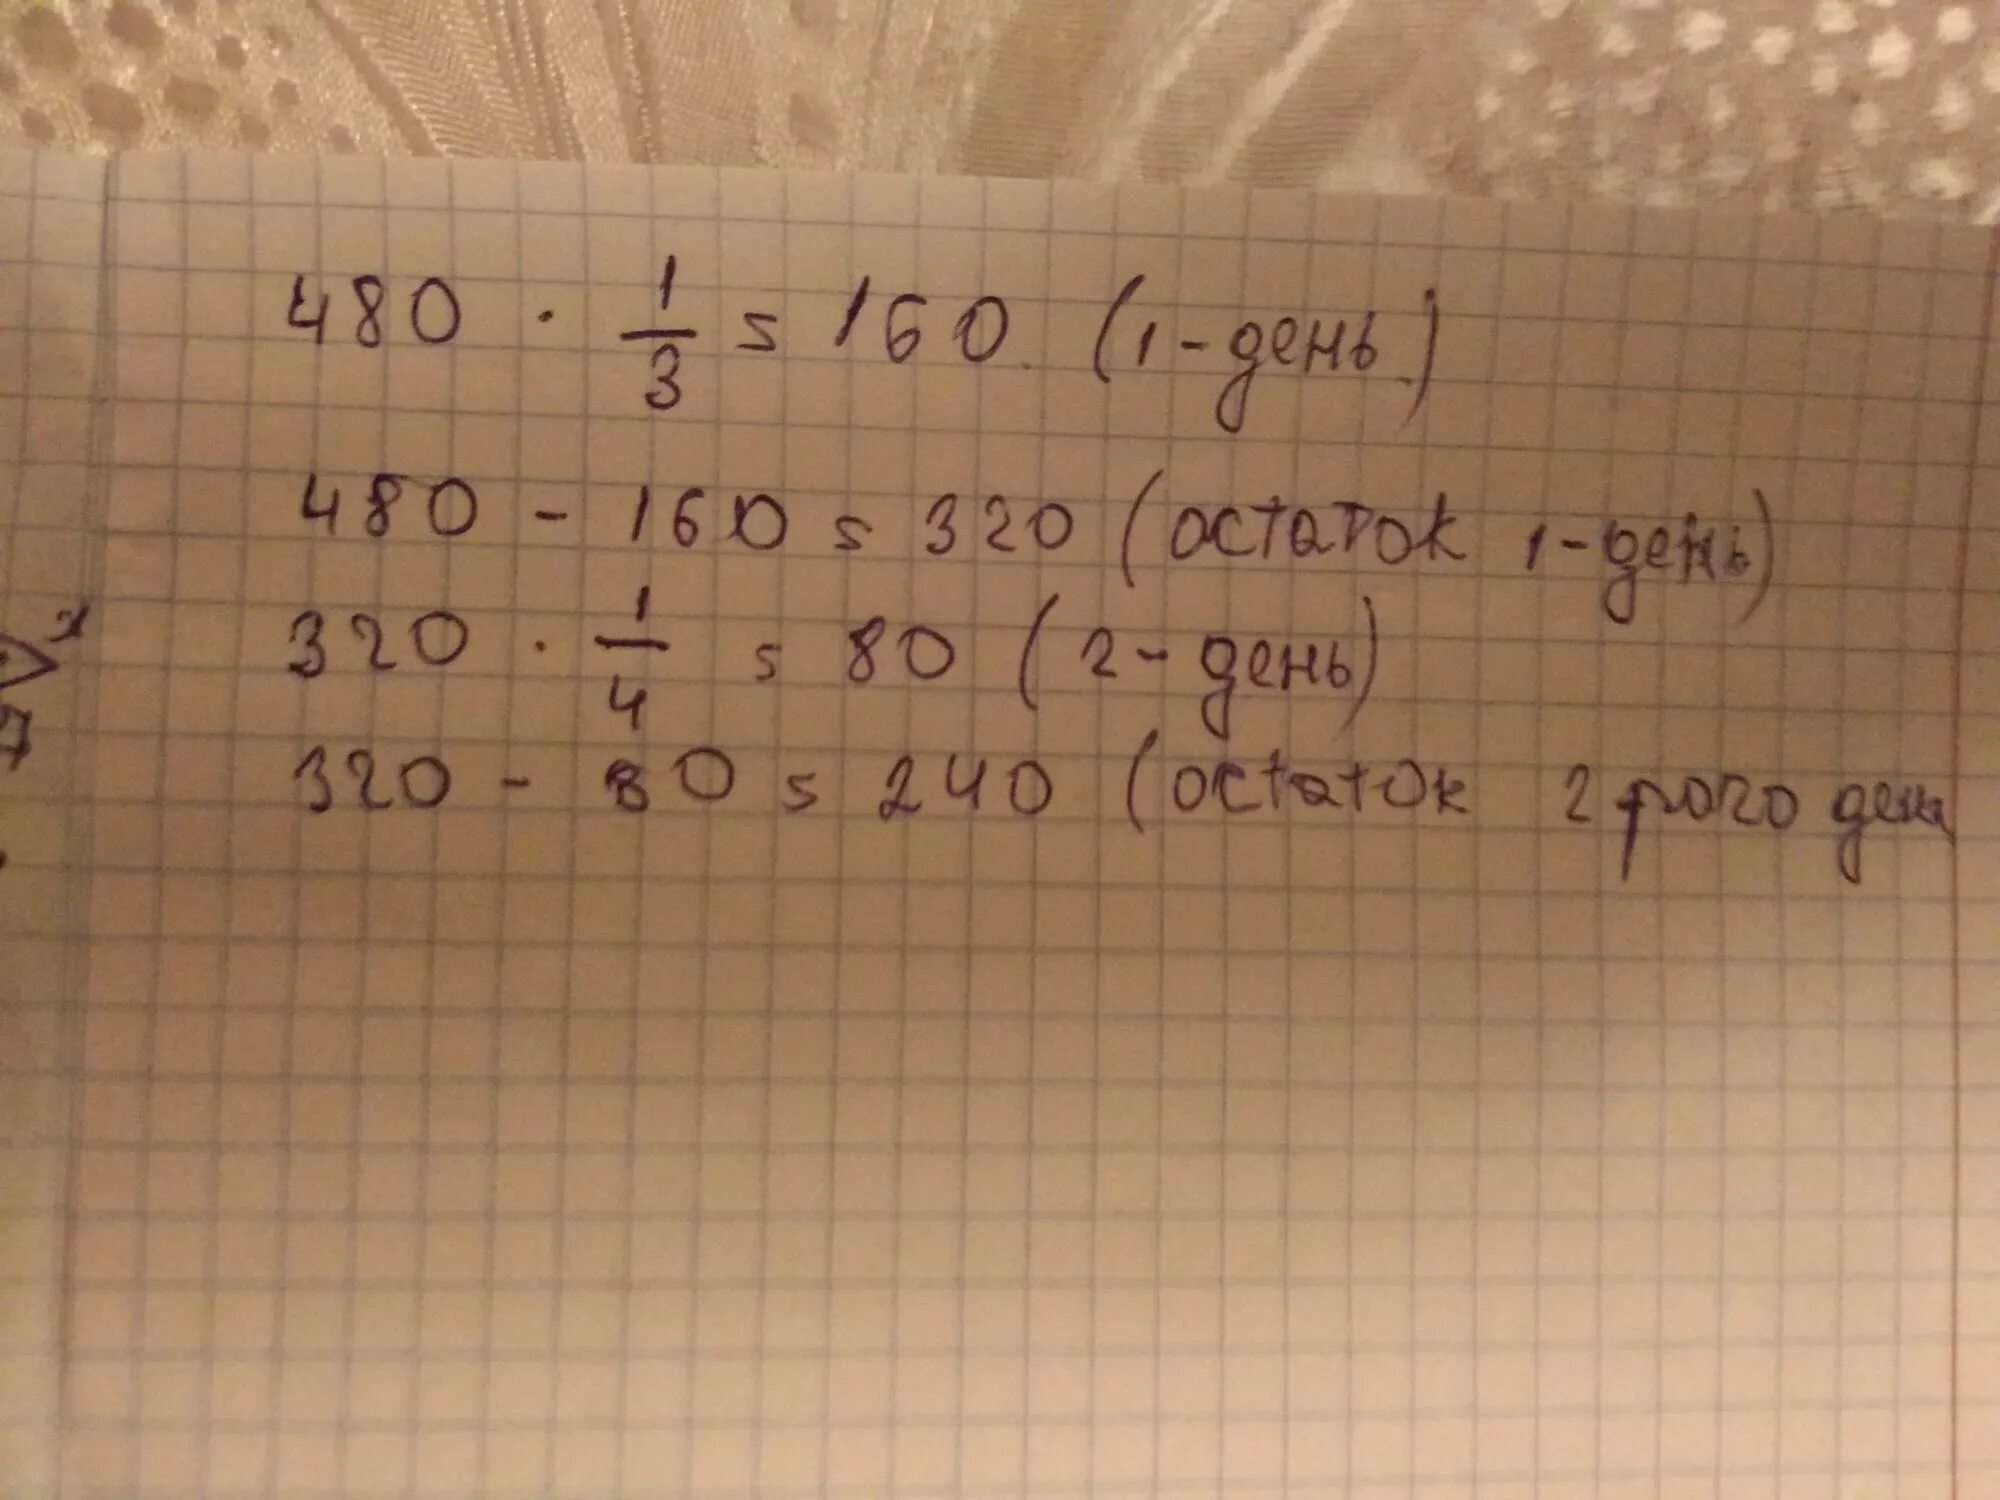 480 · 1/3 = 160 (1-день)
480 - 160 = 320 (остаток 1-день)
320 · 1/4 = 80 (2-день)
320 - 80 = 240 (остаток 2рого день